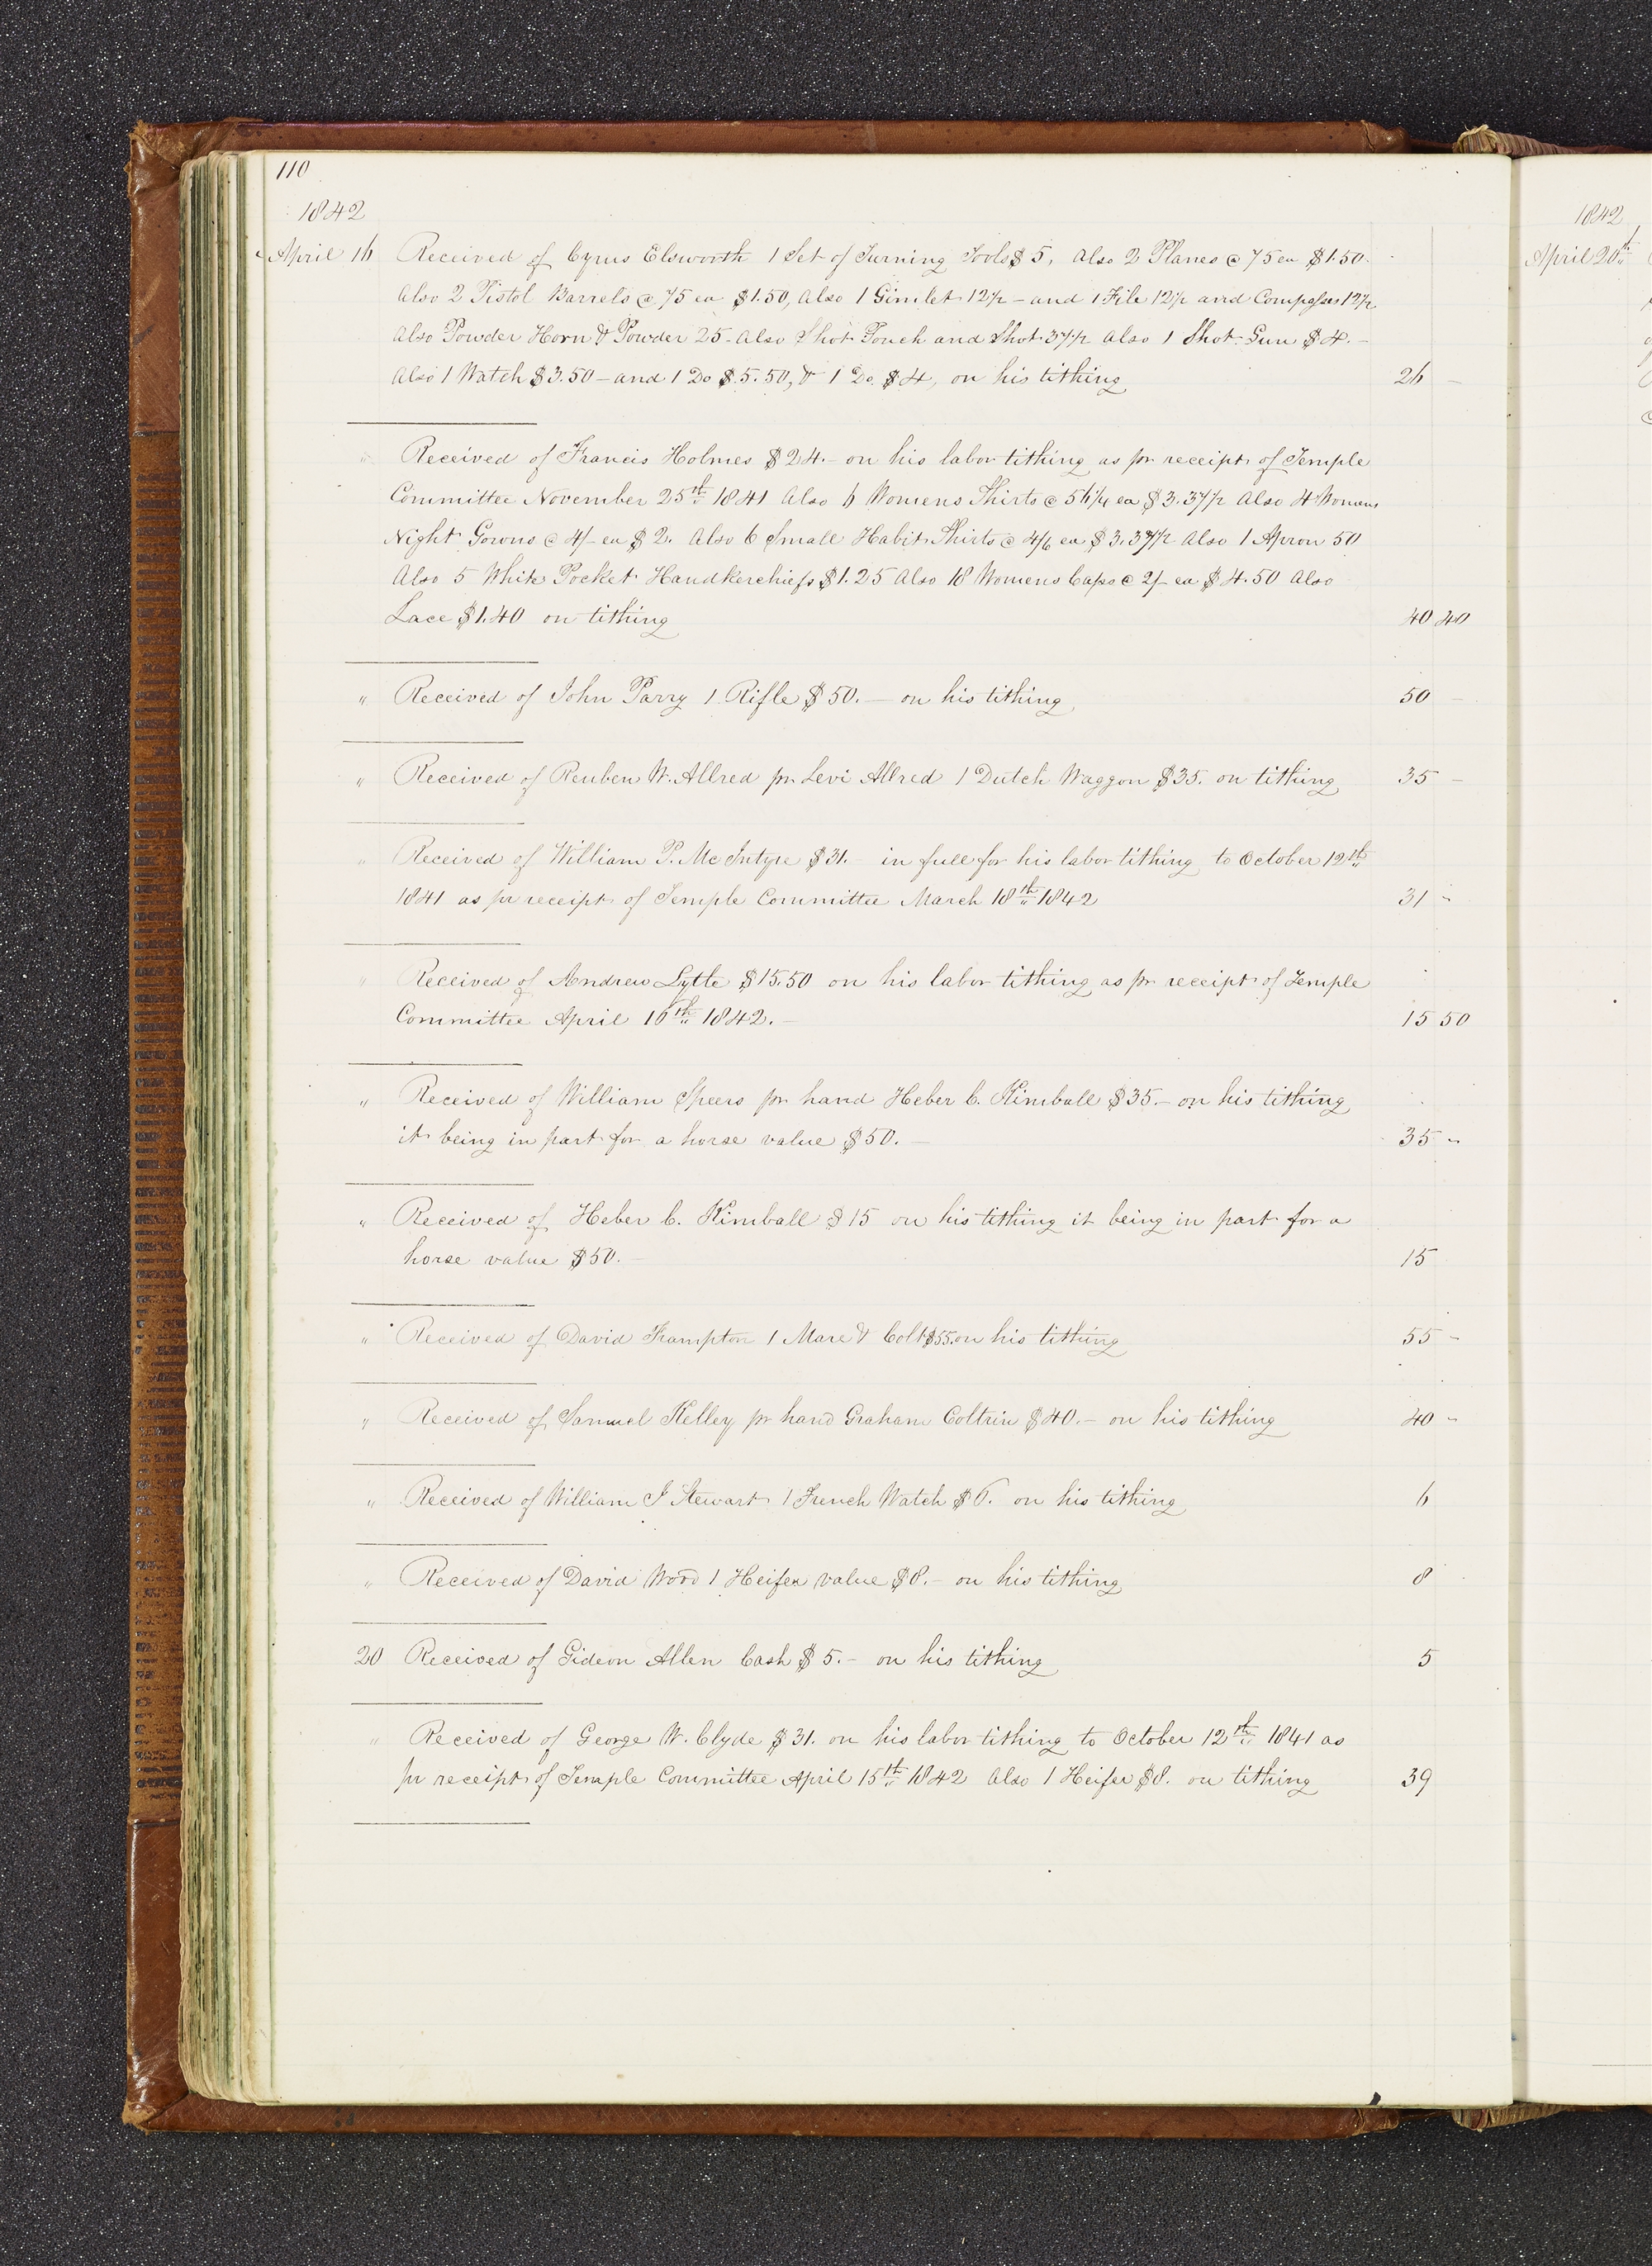 110
1842
April 16 Received of Cyrus Elsworth 1 Set of Turning Tools $5, Also 2 Planes @ 75 ea $1.50
Also 2 Pistol Barrels @ 75 ea $1.50, Also 1 Gimlet 12½ - and 1 File 12½ and Compasses 12½
Also Powder Horn & Powder 25 - Also Shot Pouch and Shot 37½ Also 1 Shot Gun $4. -
Also 1 Watch $3.50 - and 1 Do $5.50, & 1 Do $4, on his tithing 26 -
" Received of Francis Holmes $24. - on his labor tithing as pr receipt of Temple
Committee November 25th 1841 Also 6 Womens Shirts @ 56¼ ea $3.37½ Also 4 Womens
Night Gowns @ 4/- ea $2. Also 6 Small Habit Shirts @ 4/6 ea $3.37½ Also 1 Apron 50
Also 5 White Pocket Handkerchiefs $1.25 Also 18 Womens Caps @ 2/- ea $4.50 Also
Lace $1.40 on tithing 40 40
" Received of John Parry 1 Rifle $50. - on his tithing 50 -
" Received of Reuben W. Allred pr Levi Allred 1 Dutch Waggon $35. on tithing 35 -
" Received of William P. McIntyre $31. - in full for his labor tithing to October 12th
1841 as pr receipt of Temple Committee March 18th 1842 31 -
" Received of Andrew Lytle $15.50 on his labor tithing as pr receipt of Temple
Committee April 16th 1842. - 15 50
" Received of William Speers pr hand Heber C. Kimball $35. - on his tithing
it being in part for a horse value $50. - 35 -
" Received of Heber C. Kimball $15 on his tithing it being in part for a
horse value $50. - 15
" Received of David Frampton 1 Mare & Colt $55. on his tithing 55 -
" Received of Samuel Kelley pr hand Graham Coltrin $40. - on his tithing 40 -
" Received of William J Stewart 1 French Watch $6. on his tithing 6
" Received of David Wood 1 Heifer value $8. - on his tithing 8
20 Received of Gideon Allen Cash $5. - on his tithing 5
" Received of George W. Clyde $31. on his labor tithing to October 12th 1841 as
pr receipt of Temple Committee April 15th 1842 Also 1 Heifer $8. on tithing 39
1842
April 20th